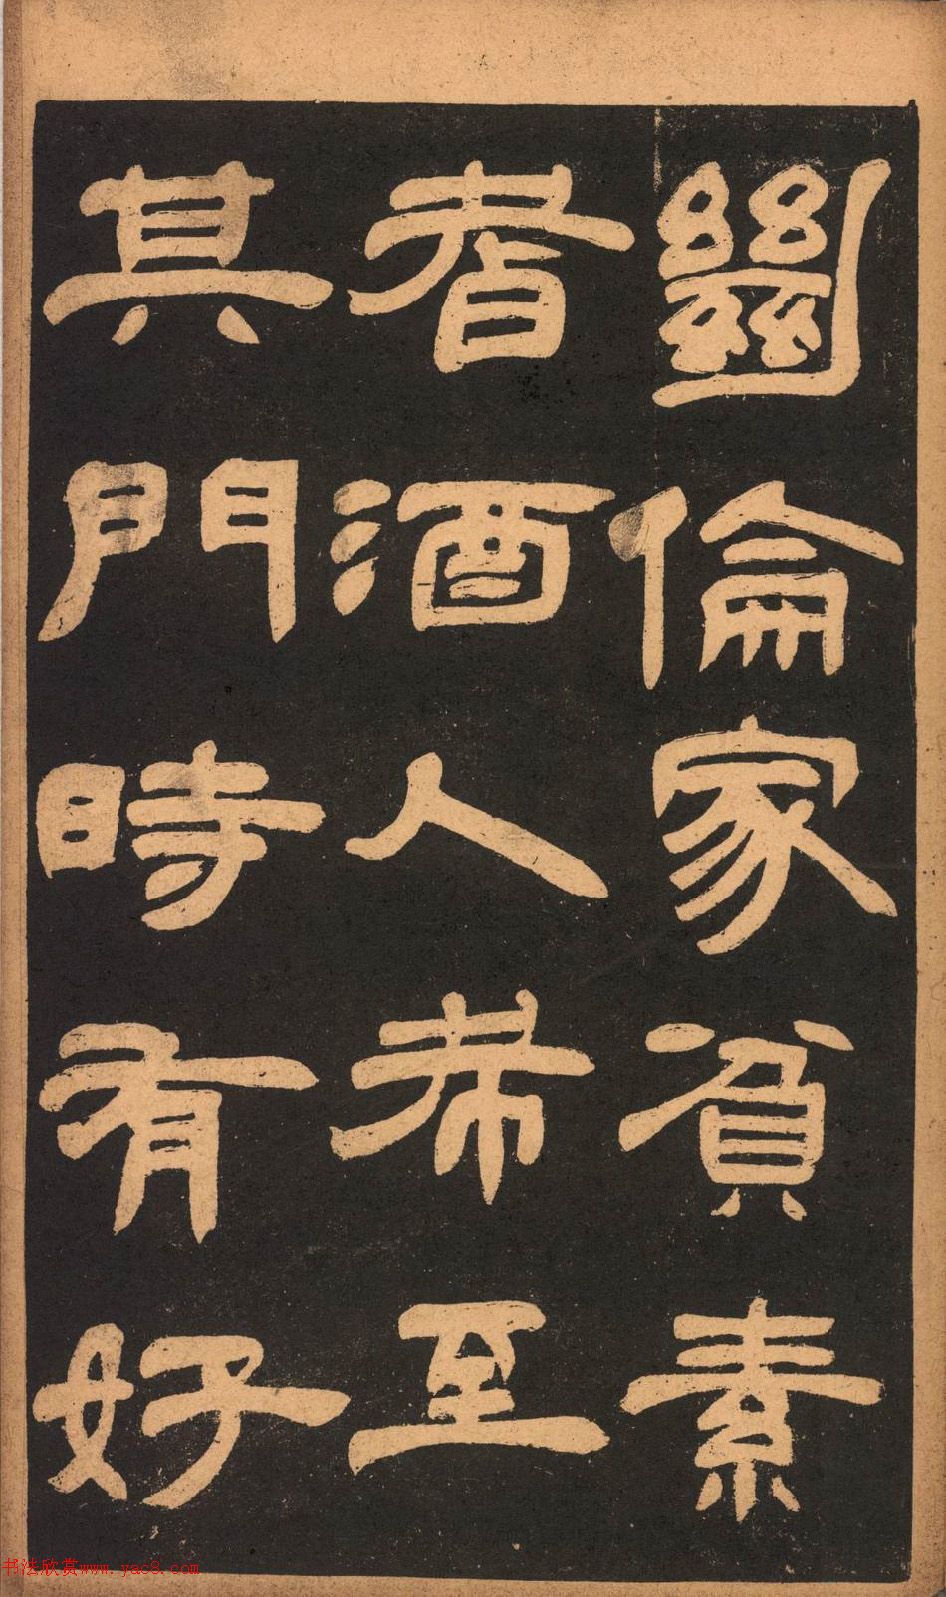 㡭倫家貧素
耆酒人希至
其門時有好
书法欣赏www.yac8.com